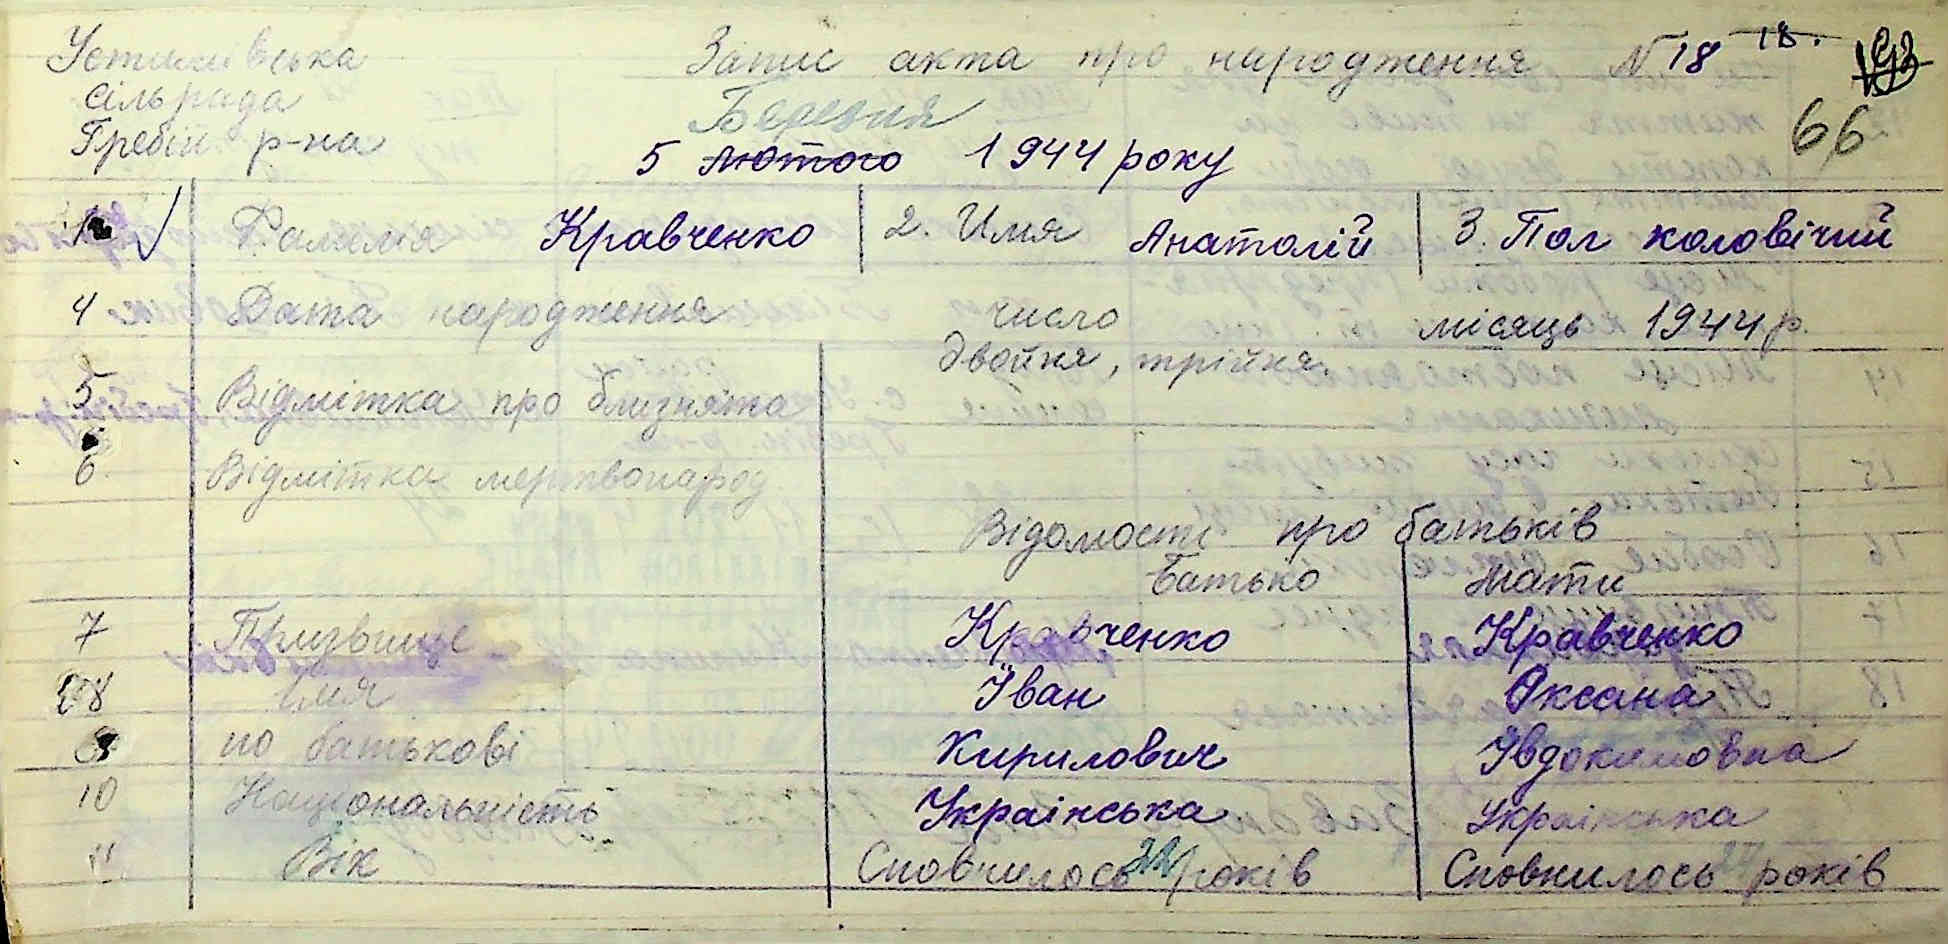 Устимівська Запис акта про народження N 18 18.
сільрада
Гребін. р-на Березня 66
5 лютого 1944 року
1 Фамилія Кравченко 2. Имя Анатолій 3. Пол чоловічий
4 Дата народження число місяць 1944 р.
двойня, трійня
5 Відмітка про близнята
6. Відмітка мертвонарод
Відомості про батьків
Батько Мати
7 Призвище Кравченко Кравченко
8 Імя Іван Оксана
9 по батькові Кирилович Івдокимовна
10 Національність Українська Українська
11 Вік Сповнилось років Сповнилось років